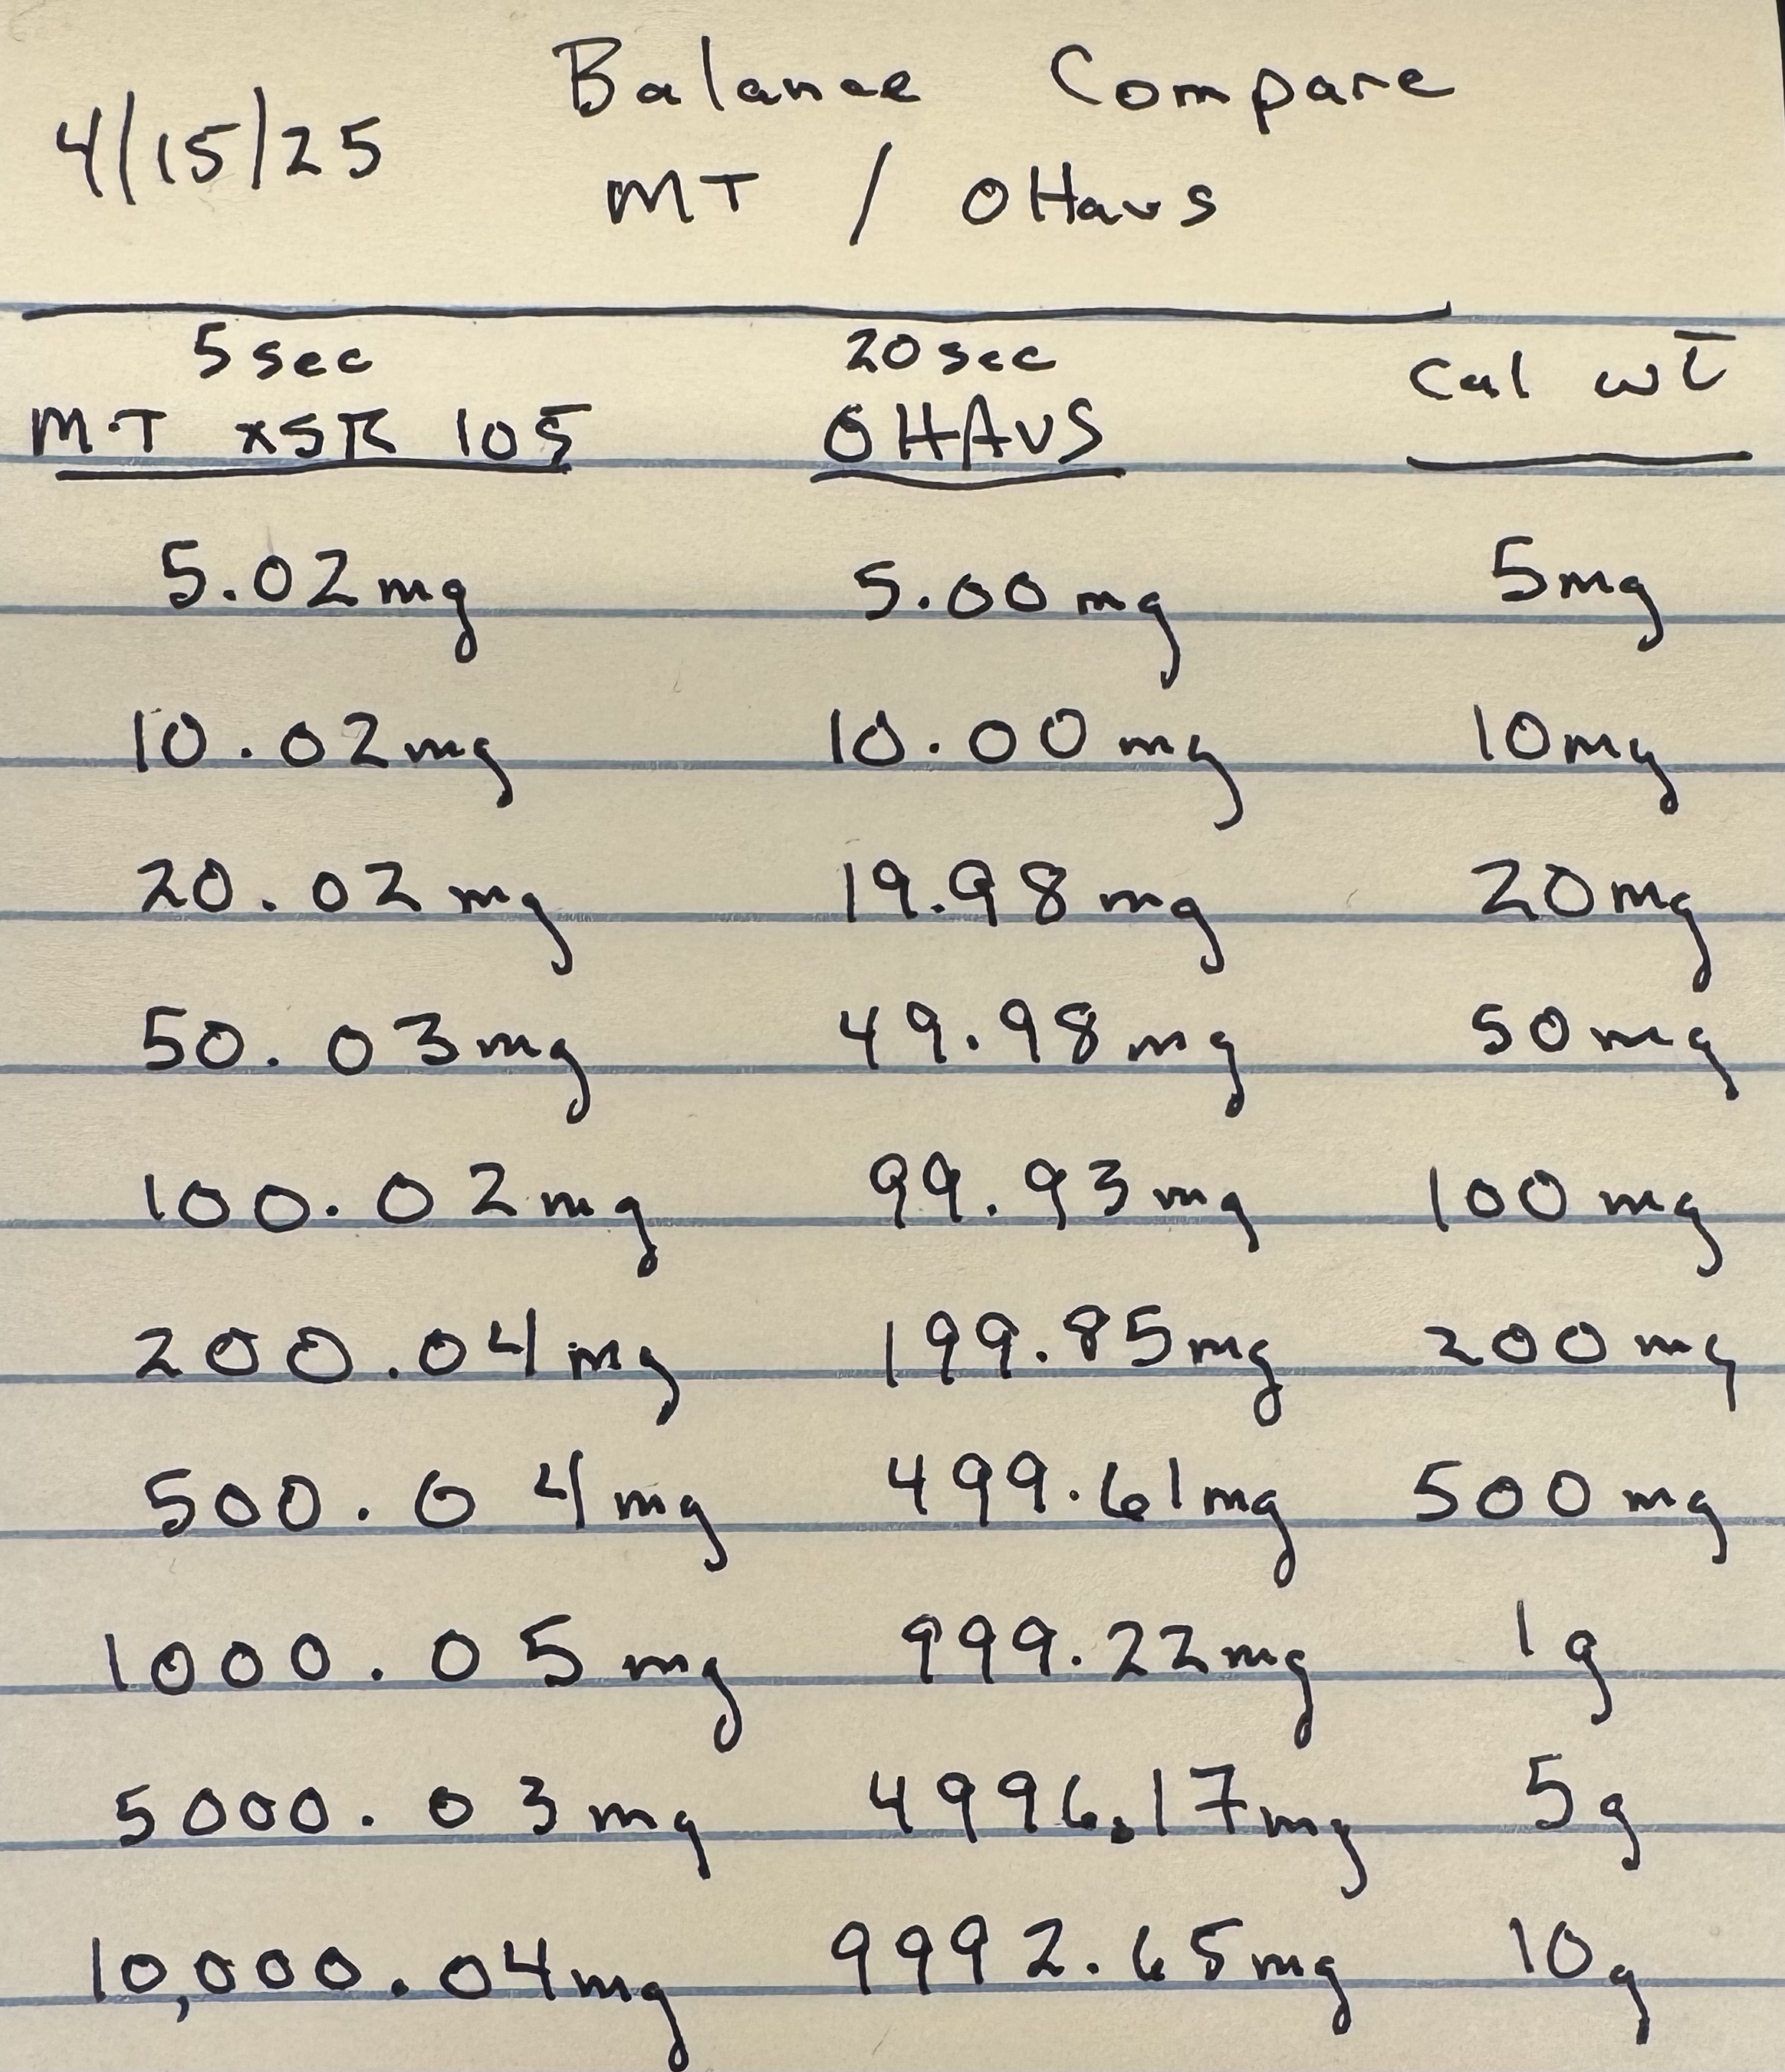 Balance Compare
4/15/25 MT / OHaus
5 sec 20 sec Cal wt
MT XSR 105 OHAUS
5.02mg 5.00mg 5mg
10.02mg 10.00mg 10mg
20.02mg 19.98mg 20mg
50.03mg 49.98mg 50mg
100.02mg 99.93mg 100mg
200.04mg 199.85mg 200mg
500.04mg 499.61mg 500mg
1000.05mg 999.22mg 1g
5000.03mg 4996.17mg 5g
10,000.04mg 9992.65mg 10g